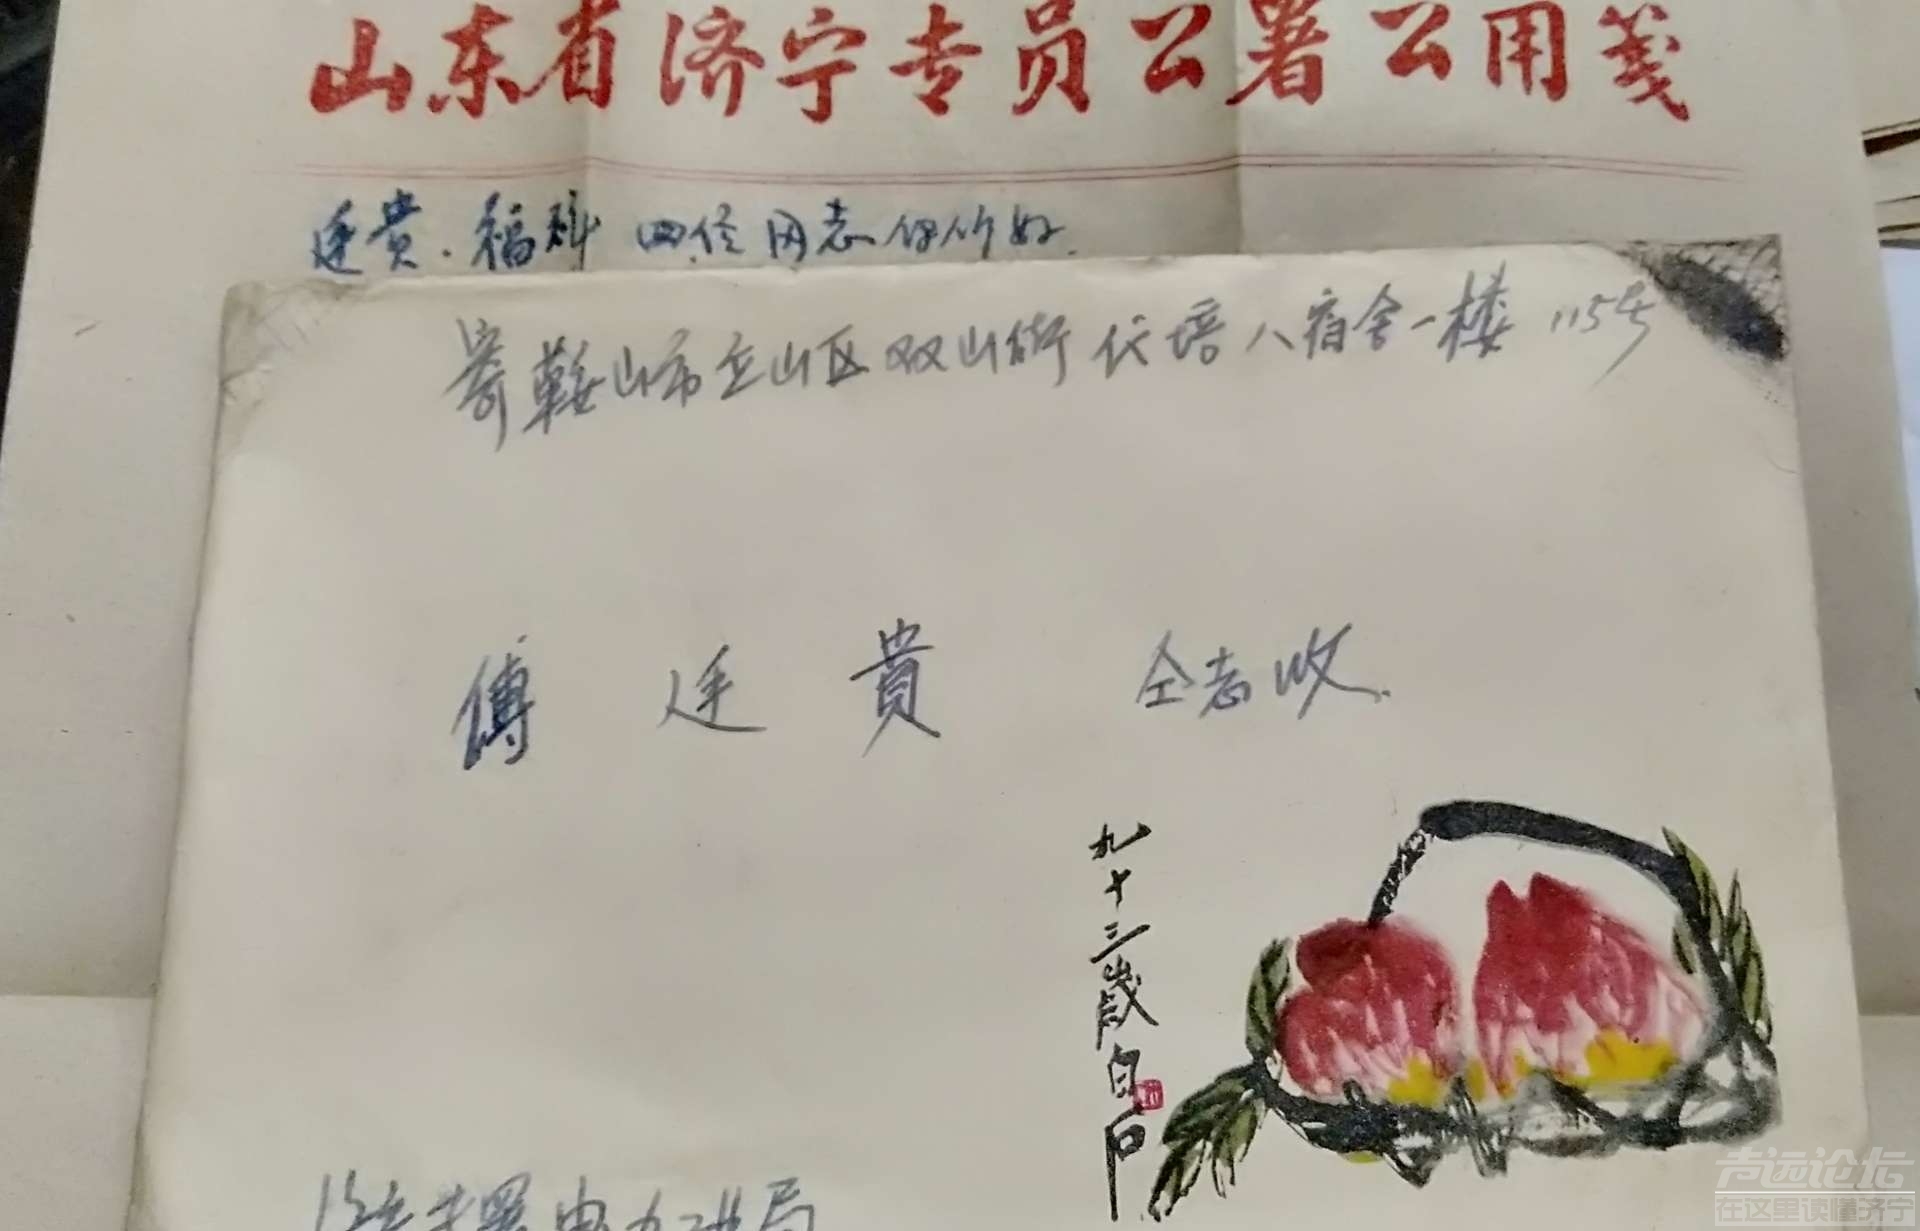 山东省济宁专员公署公用笺
廷贵．福科 四位同志你们好
寄鞍山市立山区双山街代培八宿舍一楼115号
傅廷貴 仝志收
九十三歲白石
电力工业局
声远论坛
在这里读懂济宁